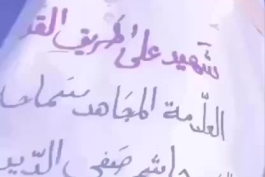 شهيد على طريق القد
العلّامة المجاهد سماحة
هاشم صفي الدين